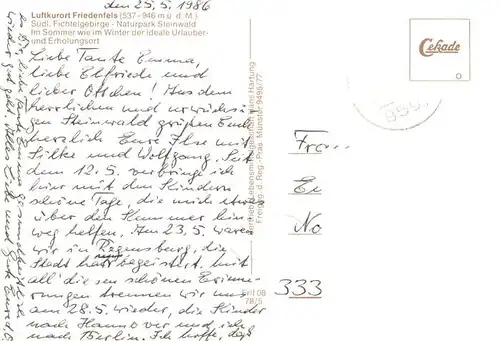 den 25.5.1986
Luftkurort Friedenfels (537-946 m ü. d. M.)
Südl. Fichtelgebirge · Naturpark Steinwald
Im Sommer wie im Winter der ideale Urlauber-
und Erholungsort
Liebe Tante Emma,
liebe Elfriede und
lieber Ottchen! Aus dem
herrlichen und urwüchsi-
gen Steinwald grüßen Euch
herzlich Eure Ilse mit
Silke und Wolfgang. Seit
dem 12.5. verbringe ich
hier mit den Kindern
schöne Tage, die mich etwas
über den Kummer hin-
weg helfen. Am 23.5. waren
wir in Regensburg, die
Stadt hat begeistert. mit
all' die sen schönen Erinne-
rungen trennen wir uns
am 28.5. wieder, die Kinder
nach Hannover und ich
nach Berlin. Ich hoffe, daß
es Dir, liebe Tante Emma gesundheitlich
wieder gut geht. Alles Liebe und Gute Eure
Freig. d. Reg.-Präs. Münster 9496/77
Frit 08
78/5
Cekade
Frau
No
333